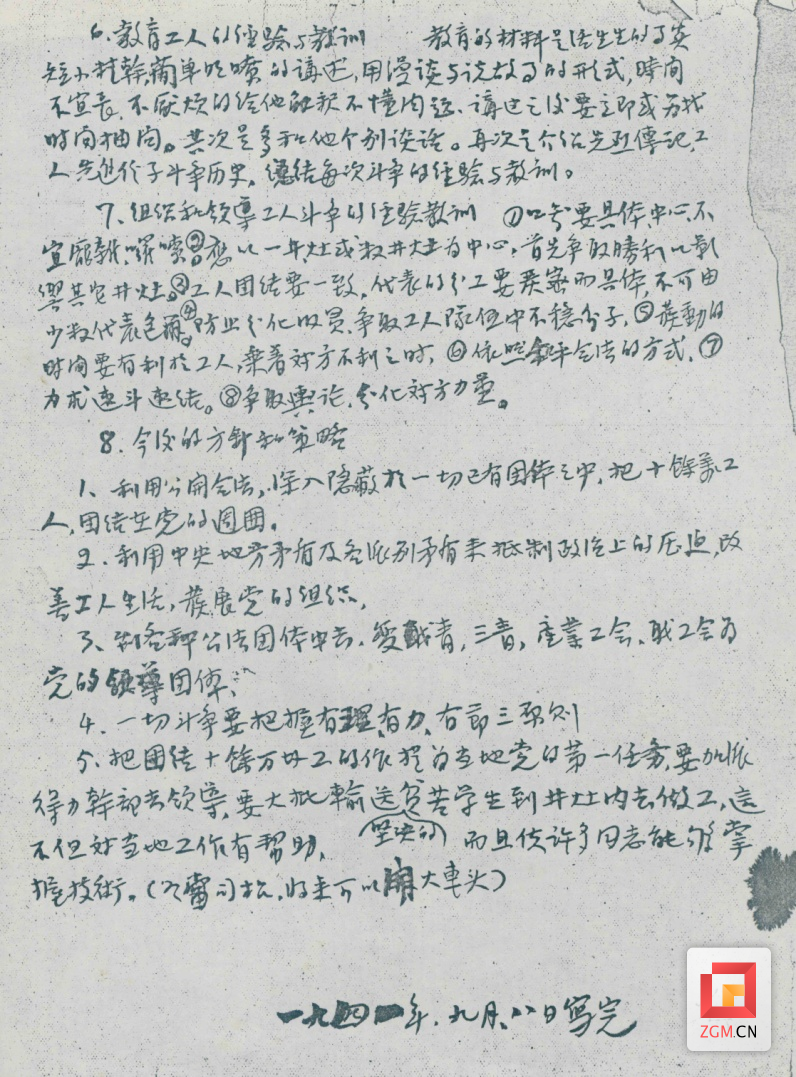 6.教育工人的经验与教训 教育的材料是活生生的事实
短小精幹,簡单明嘹的讲述,用漫谈与说故事的形式,時间
不宜長,不厭烦的给他解释不懂问题、讲过之後要立即或另找
时间抽问。其次是多和他个别谈话。再次是介绍先烈傳記,工
人先進份子斗争历史,總结每次斗争的经验与教训。
7.组织和领導工人斗争的经验教训 ①口号要具体,中心,不
宜龐雜,囉嗦②想以一井,灶或数井灶为中心,首先争取勝利以影
響其它井灶。③工人团结要一致,代表的分工要严密而具体,不可由
少数代表包辦。④防止分化收買,争取工人隊伍中不稳分子,⑤發動的
时间要有利於工人,乘着对方不利之时,⑥依照和平合法的方式,⑦
力求速斗速结。⑧争取輿论,分化对方力量。
8.今後的方針和策略
1、利用公開合法,深入隐蔽於一切已有团体之中,把十餘萬工
人,团结在党的週囲。
2.利用中央地方矛盾及各派别矛盾来抵制政治上的压迫,改
善工人生活,發展党的组织,
3、到各种公法团体中去.爱戴青,三青,產業工会、职工会为
党的領導团体、
4.一切斗争要把握有理、有力、有節三原则
5.把团结十餘万井工的作於为当地党的第一任务,要加派
得力幹部去领導,要大批輸送貧苦学生到井灶内去做工,這
不但对当地工作有帮助,(坚决的)而且使许多同志能够掌
握技術。(冷當司机,将来可以開大車头)
一九四一年.九月、八日寫完
ZGM.CN